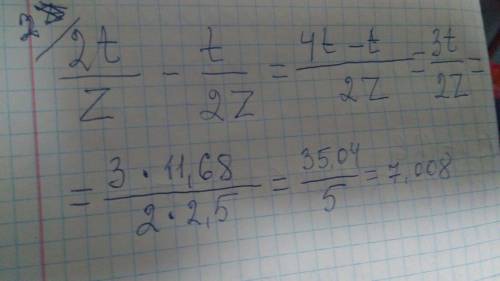 23/ 2t/Z - t/2Z = 4t-t/2Z = 3t/2Z =
= 3·11,68/2·2,5 = 35,04/5 = 7,008